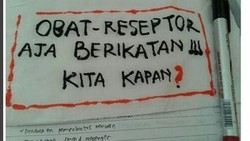 OBAT-RESEPTOR
AJA BERIKATAN !!!
KITA KAPAN?